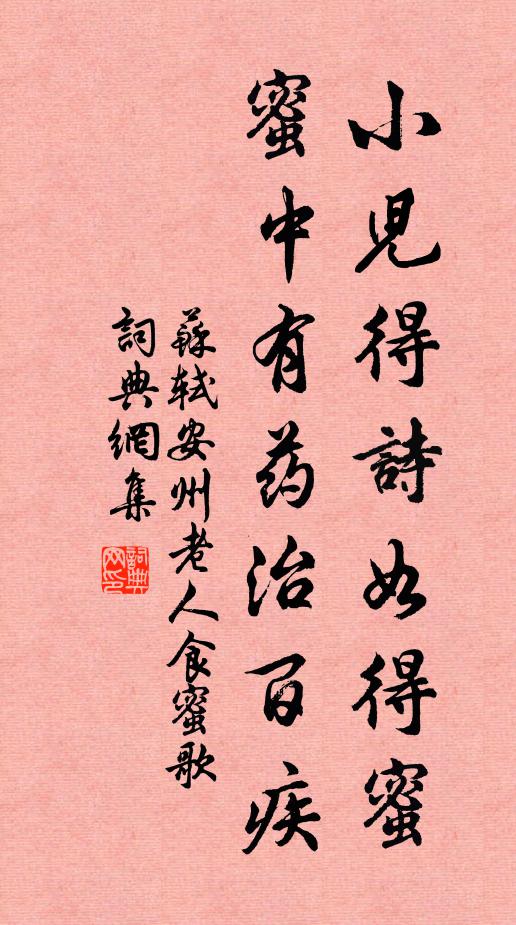 小兒得詩如得蜜
蜜中有药治百疾
蘇軾安州老人食蜜歌
詞典網集
詞典网印